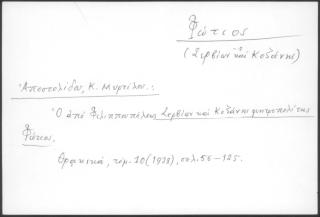 Φώτιος
(Σερβίων καὶ Κοζάνης)
Ἀποστολίδου, Κ. Μυρτίλου.:
Ὁ ἀπὸ Φιλιππουπόλεως Σερβίων καὶ Κοζάνης μητροπολίτης
Φώτιος.
Θρακικά, τόμ. 10 (1938), σελ. 56-125.